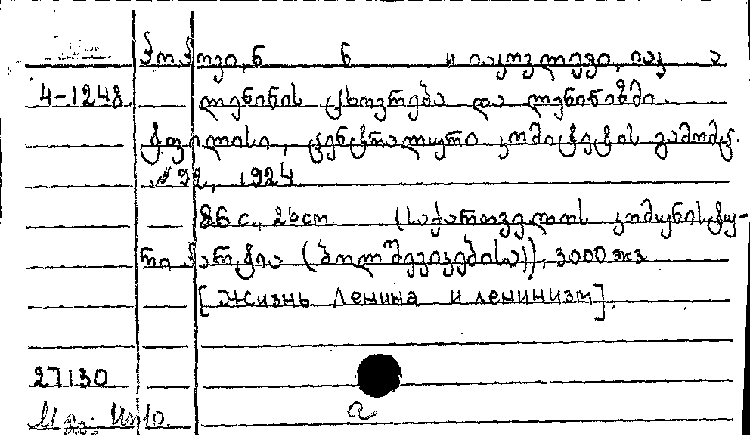 პოპოვი, ნ ნ и იაკოვლევი, იაკ ა
4-1248 ლენინის ცხოვრება და ლენინიზმი.
ტფილისი, ცენტრალური კომიტეტის გამომც.
№ 92, 1924
86 с., 26 см (საქართველოს კომუნისტუ-
რი პარტია (ბოლშევიკებისა)), 3000 экз
[Жизнь Ленина и ленинизм].
27130